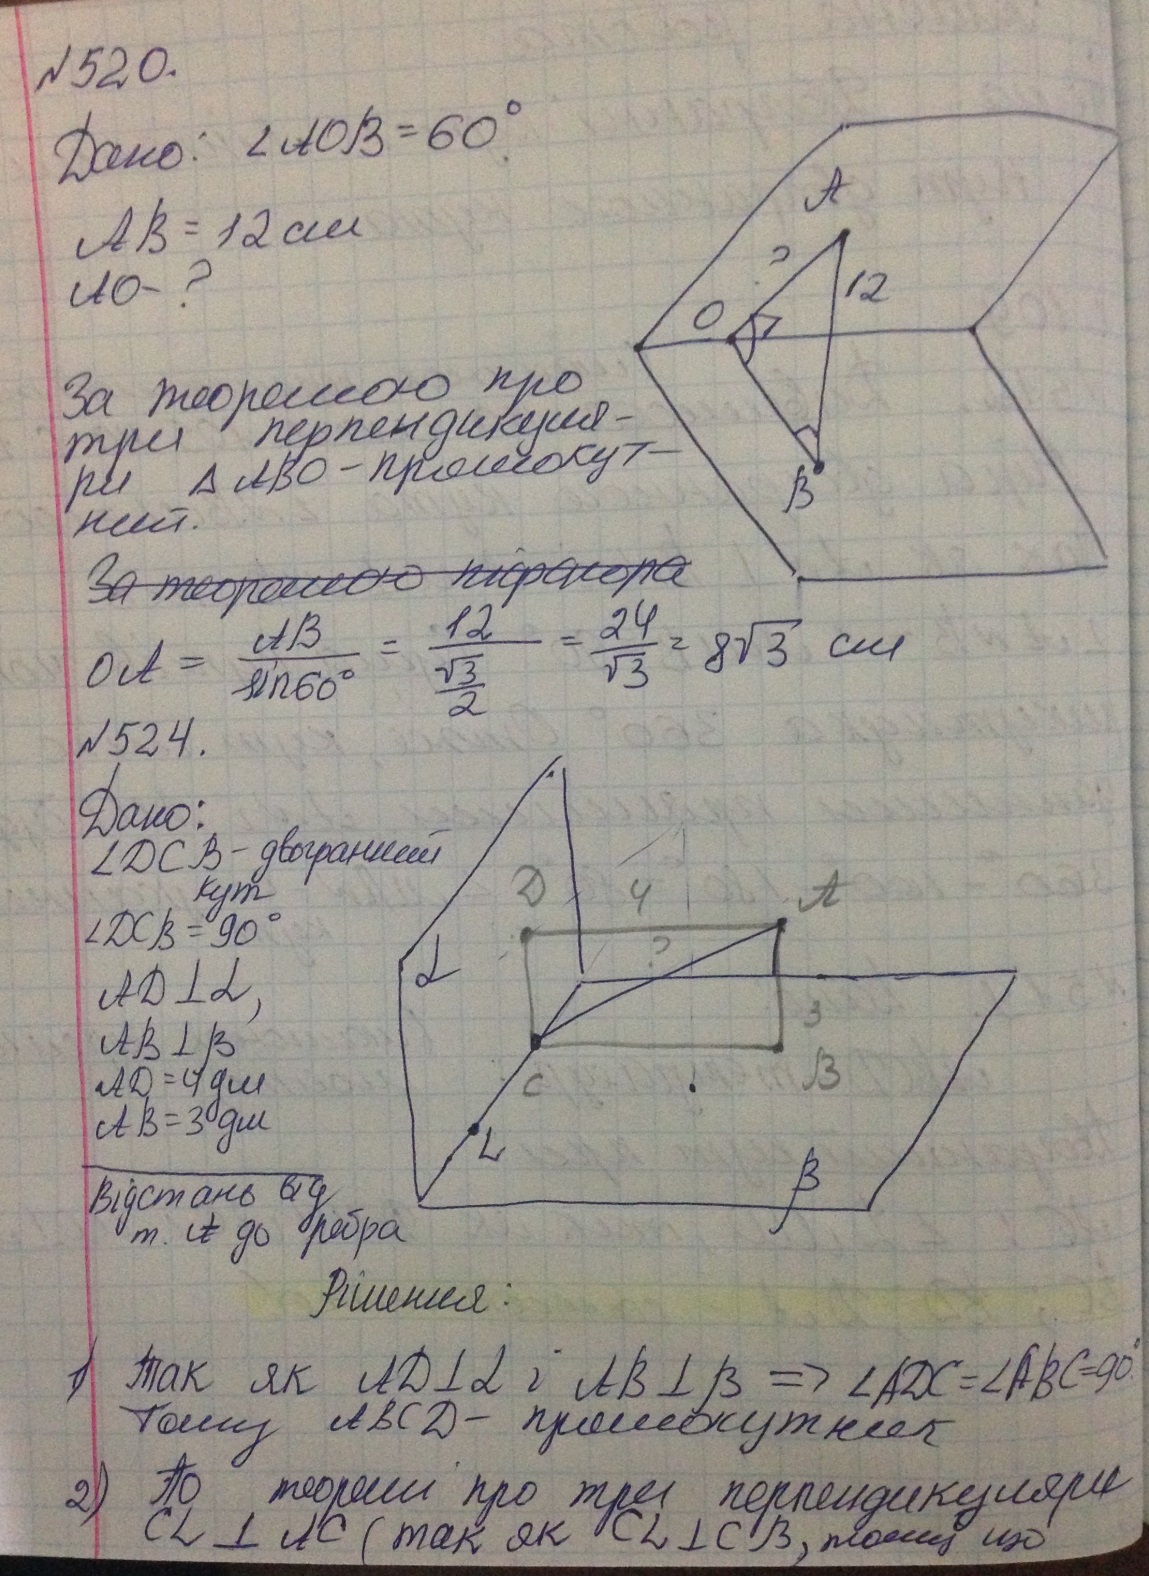 №520.
Дано: ∠AOB = 60°.
AB = 12 см
AO - ?
A
?
12
O
B
За теоремою про
три перпендикуля-
ри △ABO - прямокут-
ний.
За теоремою піфагора
OA = AB/sin60° = 12/(√3/2) = 24/√3 = 8√3 см
№524.
Дано:
∠DCB - двогранний
кут
∠DCB = 90°
AD ⊥ α,
AB ⊥ β
AD = 4 дм
AB = 3 дм
Відстань від
т. A до ребра
D
4
A
α
?
3
C
B
L
β
Рішення:
1) Так як AD ⊥ α і AB ⊥ β => ∠ADC = ∠ABC = 90°.
Тому ABCD - прямокутник
2) По теоремі про три перпендикуляри
CL ⊥ AC (так як CL ⊥ CB, тому що